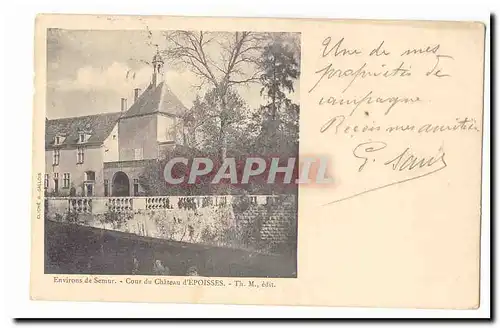 Une de mes
propriétés de
campagne
Recois mes amitiés
G.
CPA
CLICHÉ A. GALLOIS
Environs de Semur. - Cour du Château d'EPOISSES. - Th. M., édit.